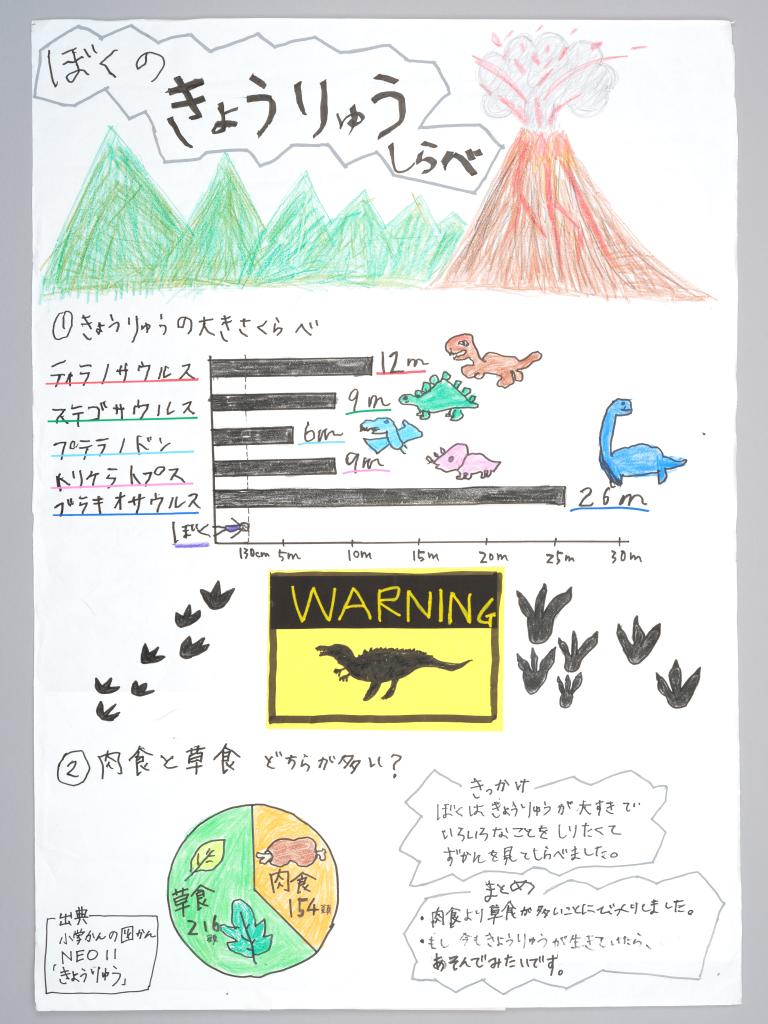 ぼくの
きょうりゅう
しらべ
①きょうりゅうの大きさくらべ
ティラノサウルス 12m
ステゴサウルス 9m
プテラノドン 6m
トリケラトプス 9m
ブラキオサウルス 26m
ぼく
130cm 5m 10m 15m 20m 25m 30m
WARNING
②肉食と草食 どちらが多い?
肉食
154頭
草食
216頭
出典
小学かんの図かん
NEO11
「きょうりゅう」
きっかけ
ぼくはきょうりゅうが大すきで
いろいろなことをしりたくて
ずかんを見てしらべました。
まとめ
・肉食より草食が多いことにビックリしました。
・もし今もきょうりゅうが生きていたら、
あそんでみたいです。